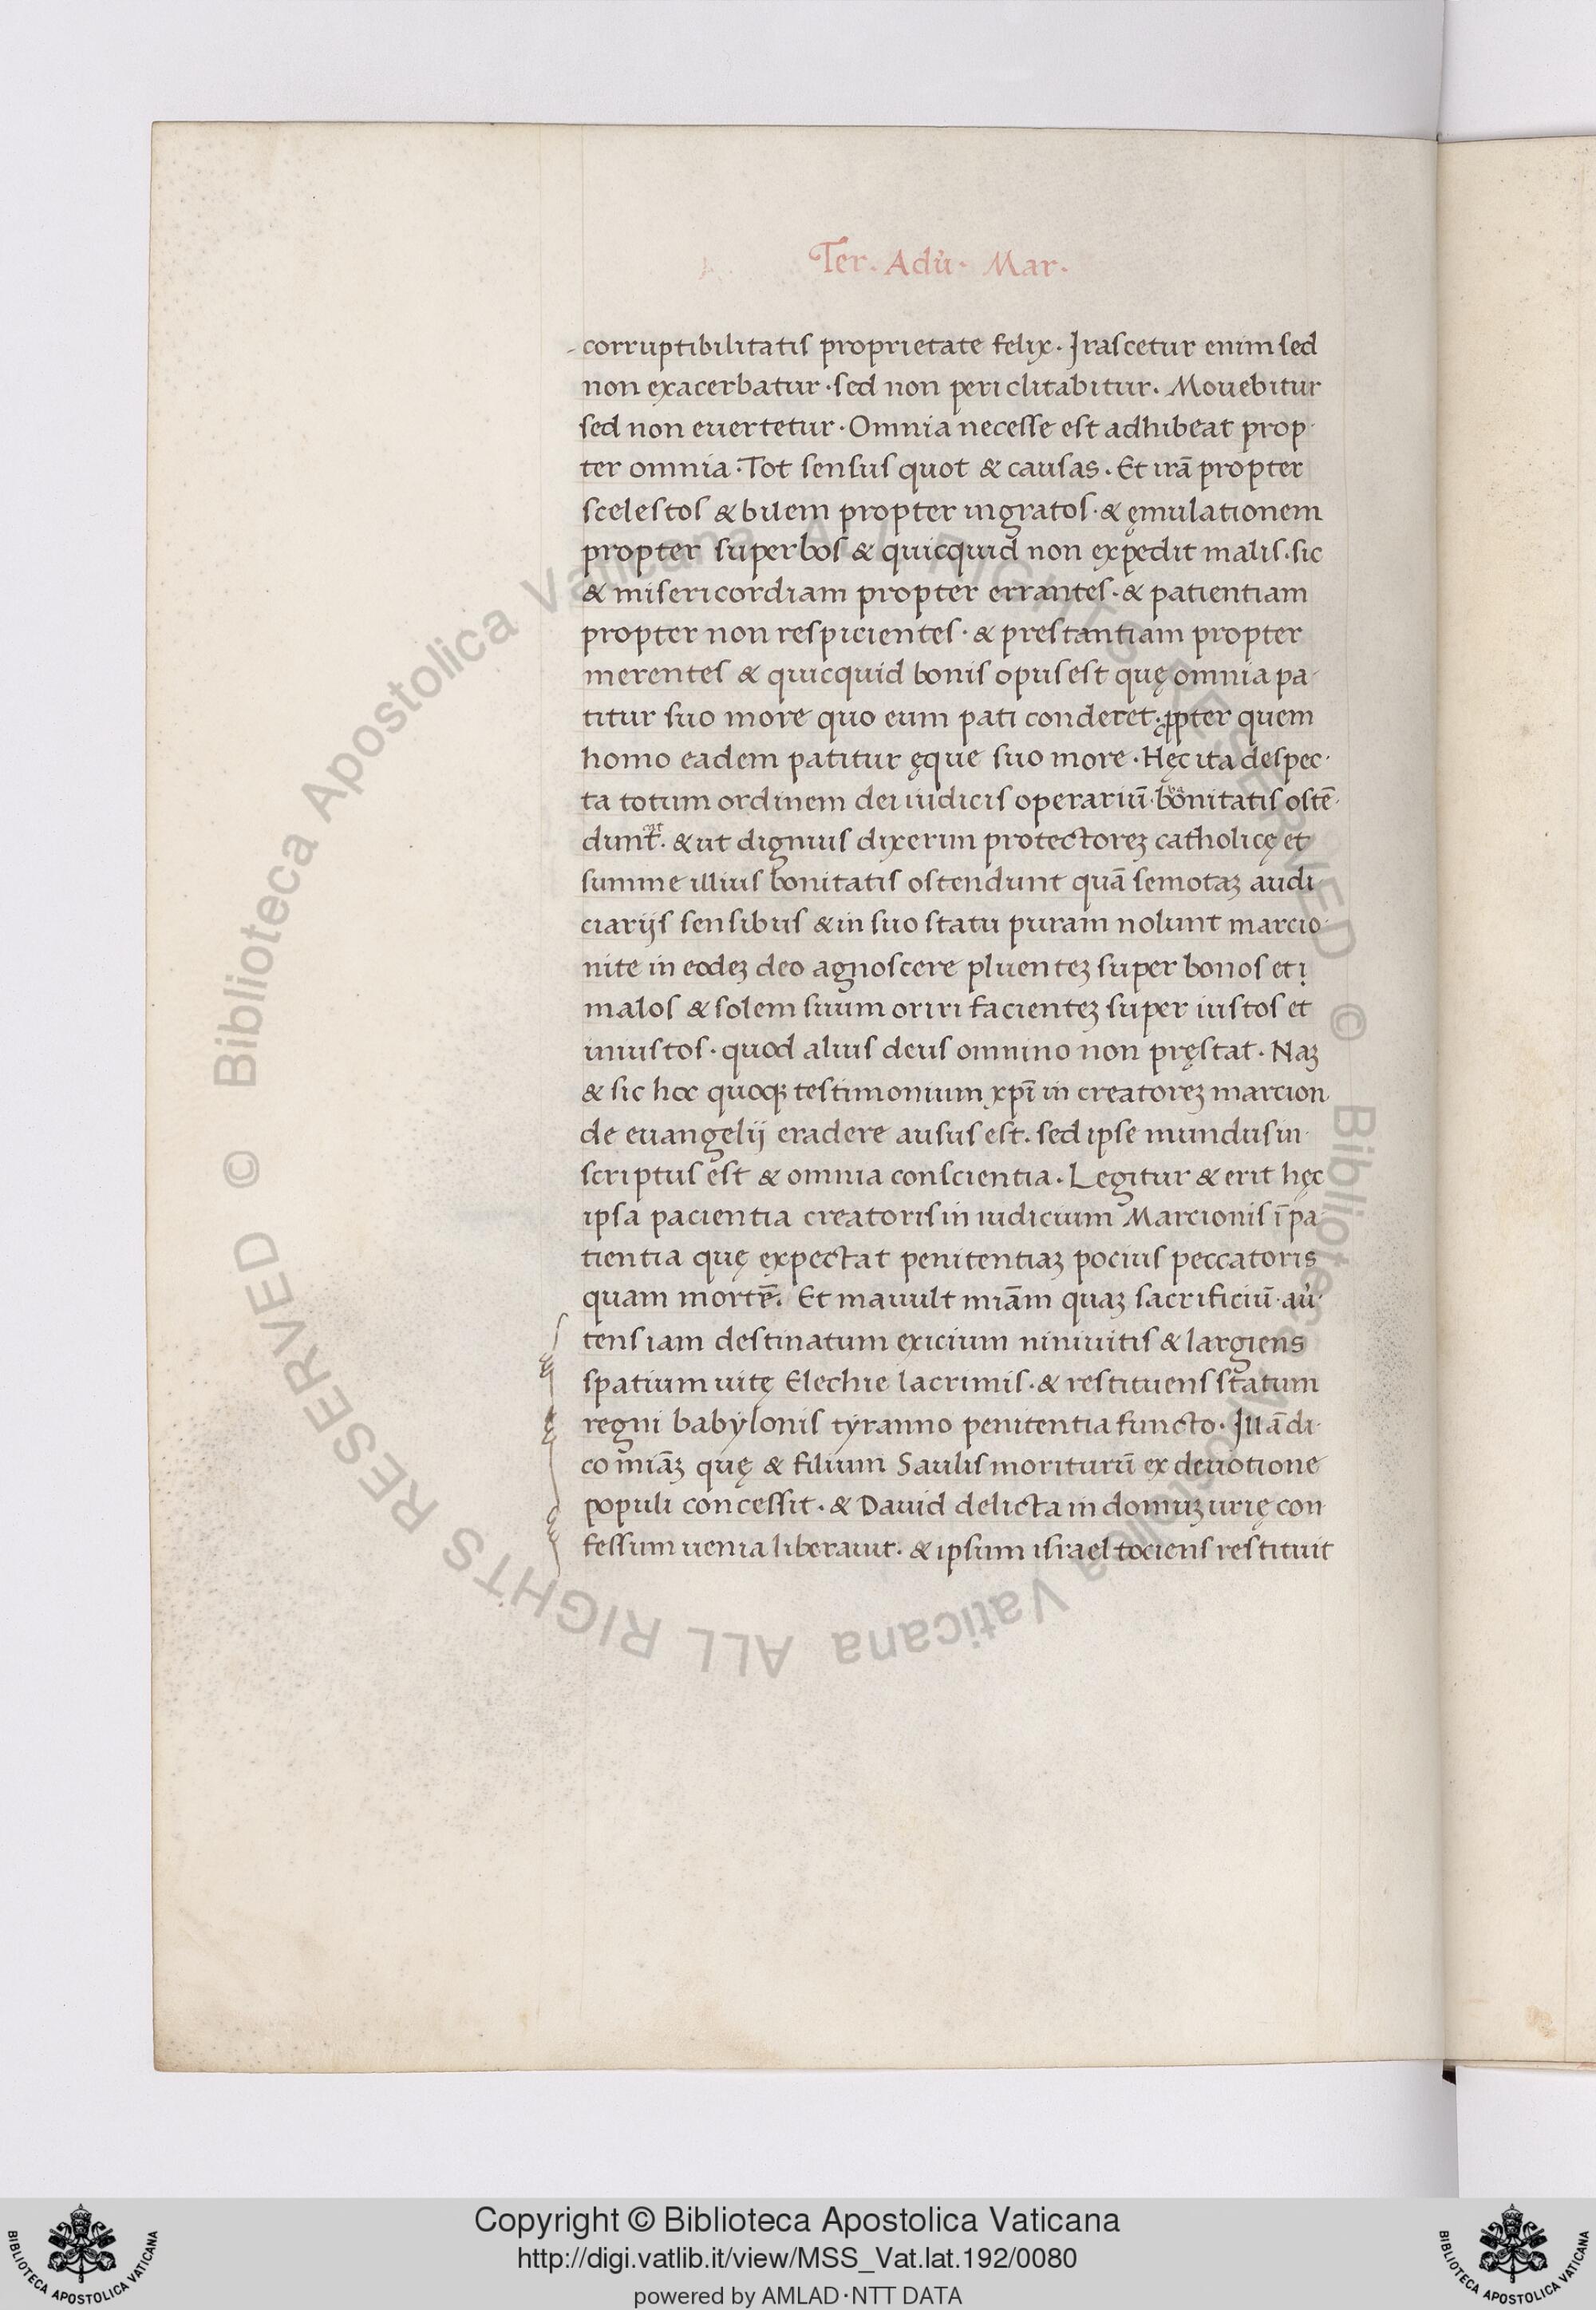 Ter. Adu̾. Mar.
corruptibilitatis proprietate felix. Irascetur enim sed
non exacerbatur. sed non periclitabitur. Mouebitur
sed non euertetur. Omnia necesse est adhibeat prop-
ter omnia. Tot sensus quot & causas. Et irā propter
scelestos & bilem propter ingratos. & ęmulationem
propter superbos & quicquid non expedit malis. sic
& misericordiam propter errantes. & patientiam
propter non respicientes. & prestantiam propter
merentes & quicquid bonis opus est quę omnia pa-
titur suo more quo eum pati conderet. ꝓpter quem
homo eadem patitur ęque suo more. Hęc ita despec-
ta totum ordinem dei iudicis operariū. bonitatis ostē-
dunt. & ut dignius dixerim protectoreꝫ catholicę et
summe illius bonitatis ostendunt quā semotaꝫ audi
ciarijs sensibus & in suo statu puram nolunt marcio-
nite in eodeꝫ deo agnoscere pluenteꝫ super bonos et
malos & solem suum oriri facienteꝫ super iustos et
iniustos. quod alius deus omnino non pręstat. Naꝫ
& sic hoc quoqꝫ testimonium xp̄i in creatoreꝫ marcion
de euangelij eradere ausus est. sed ipse mundus in-
scriptus est & omnia conscientia. Legitur & erit hęc
ipsa pacientia creatoris in iudicium Marcionis īpa-
tientia quę expectat penitentiaꝫ pocius peccatoris
quam mortē. Et mauult miām quaꝫ sacrificiū. au̾-
tens iam destinatum exicium niniuitis & largiens
spatium uitę Elechie lacrimis. & restituens statum
regni babylonis tyranno penitentia functo. Illā di-
co miāꝫ quę & filium Saulis moriturū ex deuotione
populi concessit. & Dauid delicta in domuꝫ urię con-
fessum uenia liberauit. & ipsum israel tociens restituit
Copyright © Biblioteca Apostolica Vaticana
http://digi.vatlib.it/view/MSS_Vat.lat.192/0080
powered by AMLAD·NTT DATA
BIBLIOTECA APOSTOLICA VATICANA
BIBLIOTECA APOSTOLICA VATICANA
© Biblioteca Apostolica Vaticana ALL RIGHTS RESERVED © Biblioteca Apostolica Vaticana ALL RIGHTS RESERVED